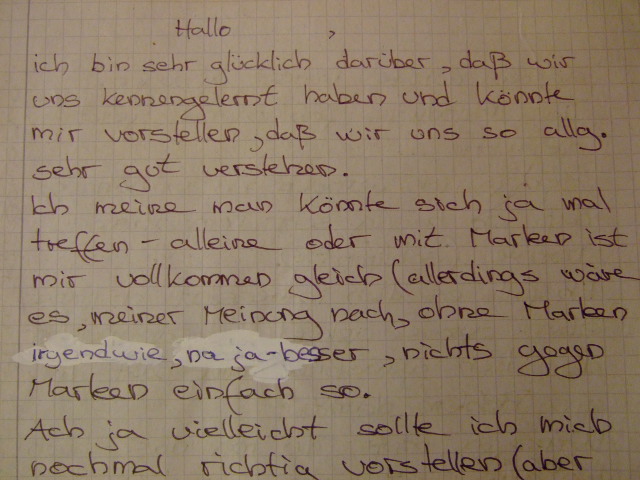 Hallo ,
ich bin sehr glücklich darüber, daß wir
uns kennengelernt haben und könnte
mir vorstellen, daß wir uns so allg.
sehr gut verstehen.
Ich meine man könnte sich ja mal
treffen - alleine oder mit Marken ist
mir vollkommen gleich (allerdings wäre
es, meiner Meinung nach, ohne Marken
irgendwie, na ja - besser, nichts gegen
Marken einfach so.
Ach ja vielleicht sollte ich mich
nochmal richtig vorstellen (aber